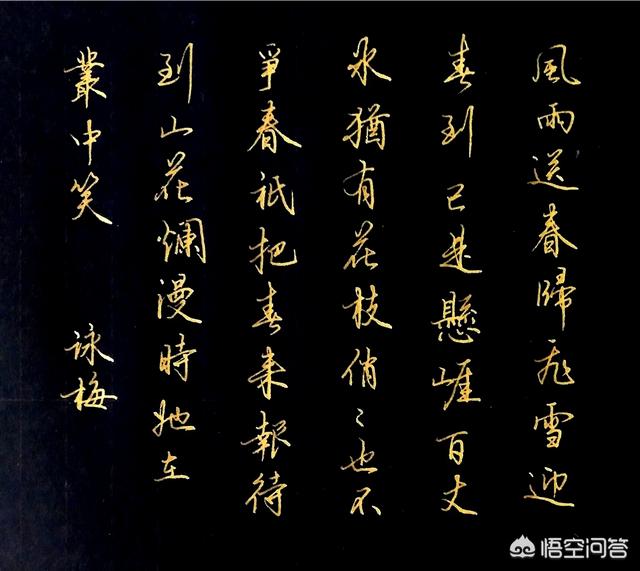 風雨送春歸飛雪迎
春到已是懸崖百丈
冰猶有花枝俏〻也不
爭春祇把春來報待
到山花爛漫時她在
叢中笑 詠梅
悟空问答